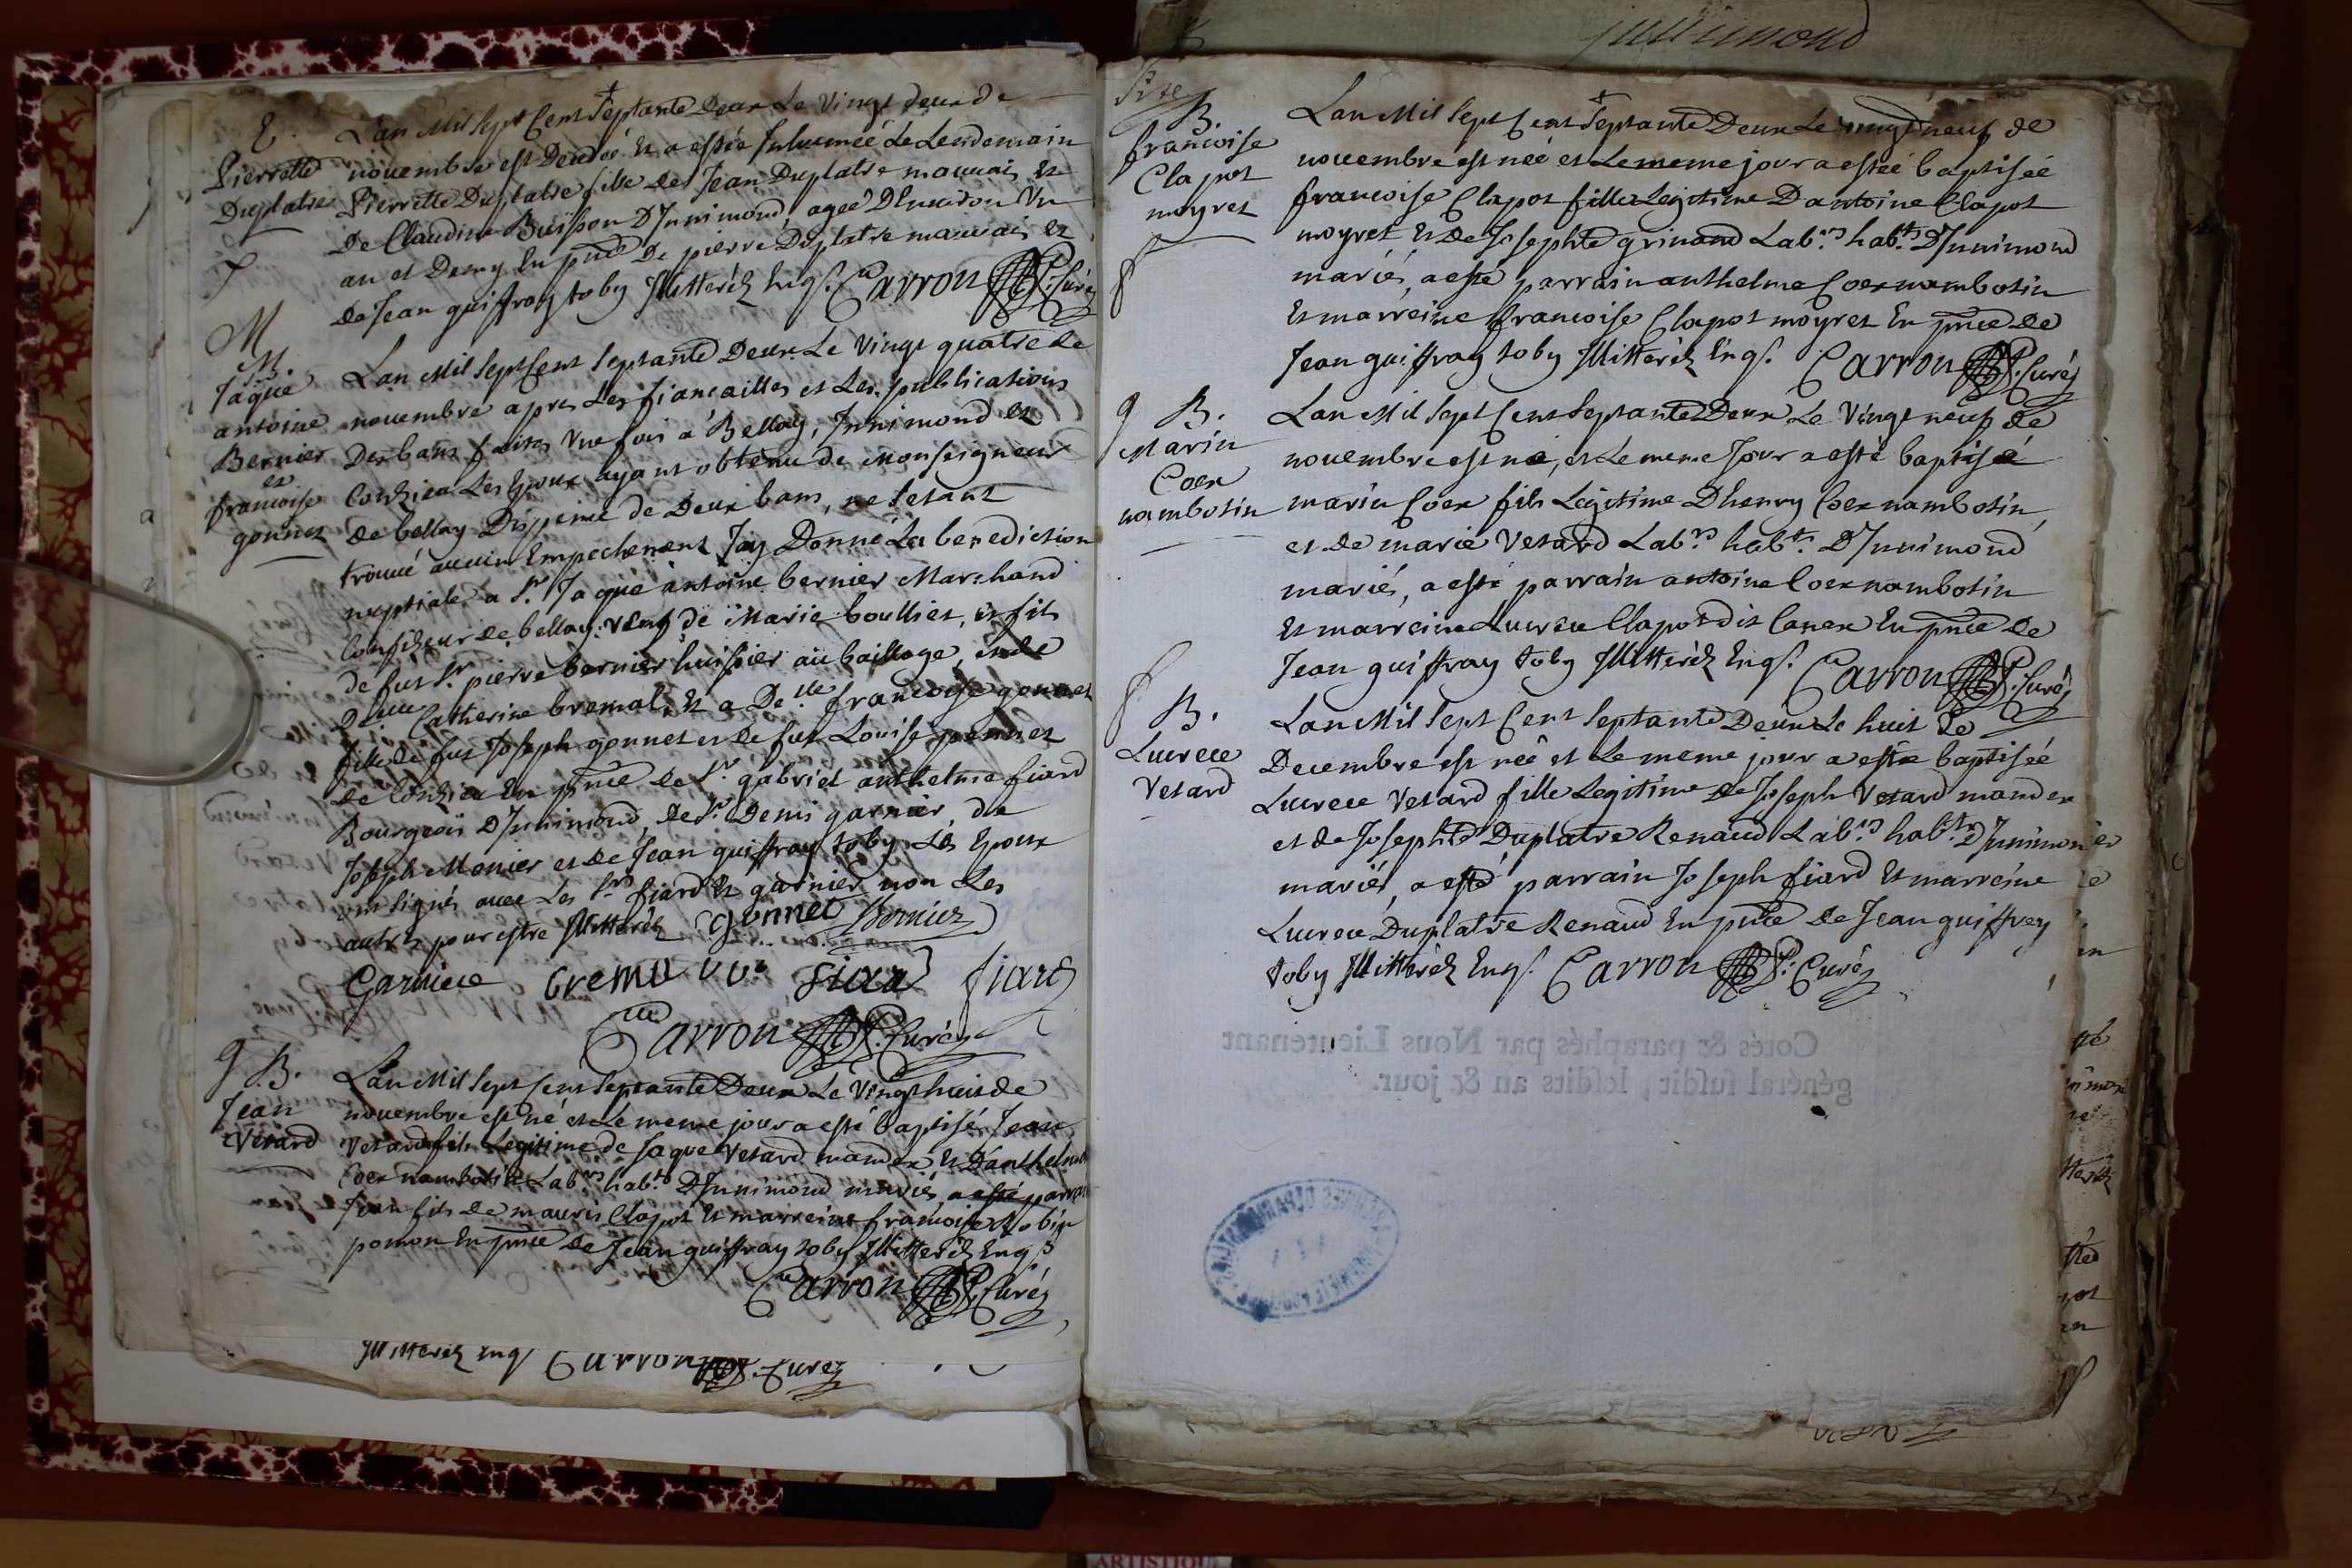 E.
Pierrette
Duplatre
L'an Mil Sept Cent Septante Deux Le Vingt deux de
novembre est Decedée Et a estée Inhumée Le Lendemain
Pierrette Duplatre fille de Jean Duplatre mauvais Et
de Claudine Buisson D'Innimond, agée D'Environ Un
an et Demy En pnce De pierre Duplatre mauvais et
de Jean guiffray toby Illitterés Enqs. Carron Curé
M.
Jaque
antoine
Bernier
et
francoise
gonnet
Lan Mil Sept Cent Septante Deux Le Vingt quatre de
novembre apres Les fiancailles et Les publications
Des bans faites Une fois a Bellay, Innimond et
Conzieu Les Epoux ayant obtenu de Monseigneur
de bellay Dispense de Deux bans, ne s'etant
trouvé aucun Empechement Jay Donné La benediction
nuptiale a Sr. Jaque antoine bernier Marchand
Confizeur de bellay, veuf de Marie boullier, et fils
de fut Sr. pierre bernier huissier au bailliage, et de
Catherine bremal, Et a Delle. francoise gonnet
fille de fut Joseph gonnet et de fut Louise pernet
de Conzieu En pnce de Sr. gabriel anthelme fiard
Bourgeois D'Innimond, de Sr. Denis garnier, de
Joseph Monier et de Jean guiffray toby. Les Epoux
ont signés avec Les Srs fiard Et garnier non Les
autres pour estre Illitterés gonnet Bernier
Garniere bremal fiard fiard
Carron Curé
B.
Jean
Vetard
L'an Mil Sept Cent Septante Deux Le Vingt huit de
novembre est né et Le meme jour a esté baptisé Jean
Vetard fils Legitime de Jaque Vetard mander Et D'anthelme
Coex nambotin Labrs habts D'Innimond mariés, a esté parrain
Jean fils de mauris Clapot Et marreine francoise Robin
pomon En pnce de Jean guiffray toby Illitterés Enqs
Carron Curé
Illitterés enqs Carron Curé
B.
francoise
Clapot
moyret
Lan Mil Sept Cent Septante Deux Le vingt neuf de
novembre est née et Le meme jour a estée baptisée
francoise Clapot fille Legitime D'antoine Clapot
moyret Et de Josephte grinand Labrs habts D'Innimond
mariés, a esté parrain anthelme Coex nambotin
Et marreine francoise Clapot moyret En pnce de
Jean guiffray toby Illitterés Enqs. Carron Curé
B.
Marin
Coex
nambotin
Lan Mil Sept Cent Septante Deux Le Vingt neuf de
novembre est né, et Le meme Jour a esté baptisé
marin Coex fils Legitime D'henry Coex nambotin
et de marie Vetard Labrs habts D'Innimond
mariés, a esté parrain antoine Coex nambotin
Et marreine Lucrece Clapot dit Canex En pnce de
Jean guiffray toby Illitterés Enqs. Carron Curé
B.
Lucrece
Vetard
Lan Mil Sept Cent Septante Deux Le huit de
Decembre est née et Le meme jour a estée baptisée
Lucrece Vetard fille Legitime de Joseph Vetard mander
et de Josephte Duplatre Renaud Labrs habts D'Innimond
mariés, a esté parrain Joseph fiard Et marreine
Lucrece Duplatre Renaud En pnce de Jean guiffrey
toby Illitterés Enqs. Carron Curé
Cotés & paraphés par Nous Lieutenant
général susdit, lesdits an & jour.
ARTISTIQU